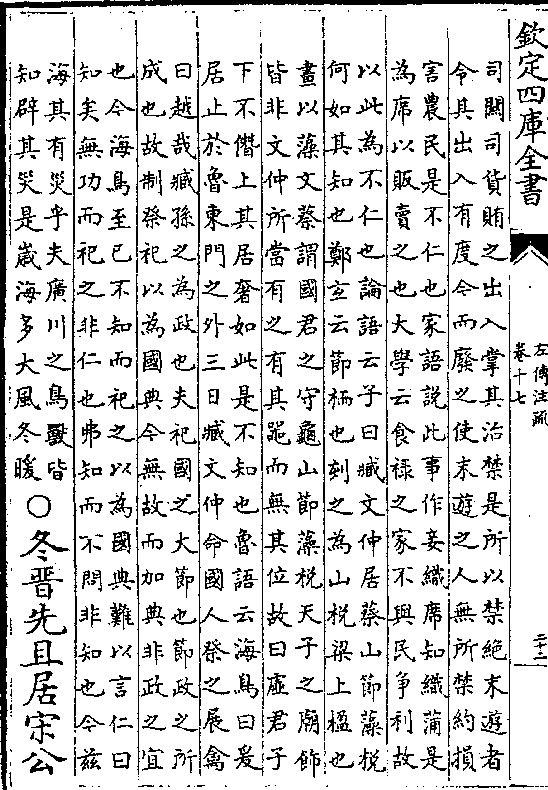 欽定四庫全書
左傳注疏
卷十七
二十二
司關司貨賄之出入掌其治禁是所以禁絶末遊者
令其出入有度今而廢之使末遊之人無所禁約損
害農民是不仁也家語説此事作妾織席知織蒲是
為席以販賣之也大學云食禄之家不與民爭利故
以此為不仁也論語云子曰臧文仲居蔡山節藻梲
何如其知也鄭玄云節栭也刻之為山梲梁上楹也
畫以藻文蔡謂國君之守龜山節藻梲天子之廟飾
皆非文仲所當有之有其器而無其位故曰虛君子
下不僭上其居奢如此是不知也魯語云海鳥曰爰
居止於魯東門之外三日臧文仲命國人祭之展禽
曰越哉臧孫之為政也夫祀國之大節也節政之所
成也故制祭祀以為國典今無故而加典非政之宜
也今海鳥至已不知而祀之以為國典難以言仁曰
知矣無功而祀之非仁也弗知而不問非知也今兹
海其有災乎夫廣川之鳥獸皆
知辟其災是歲海多大風冬暖
○冬晉先且居宋公